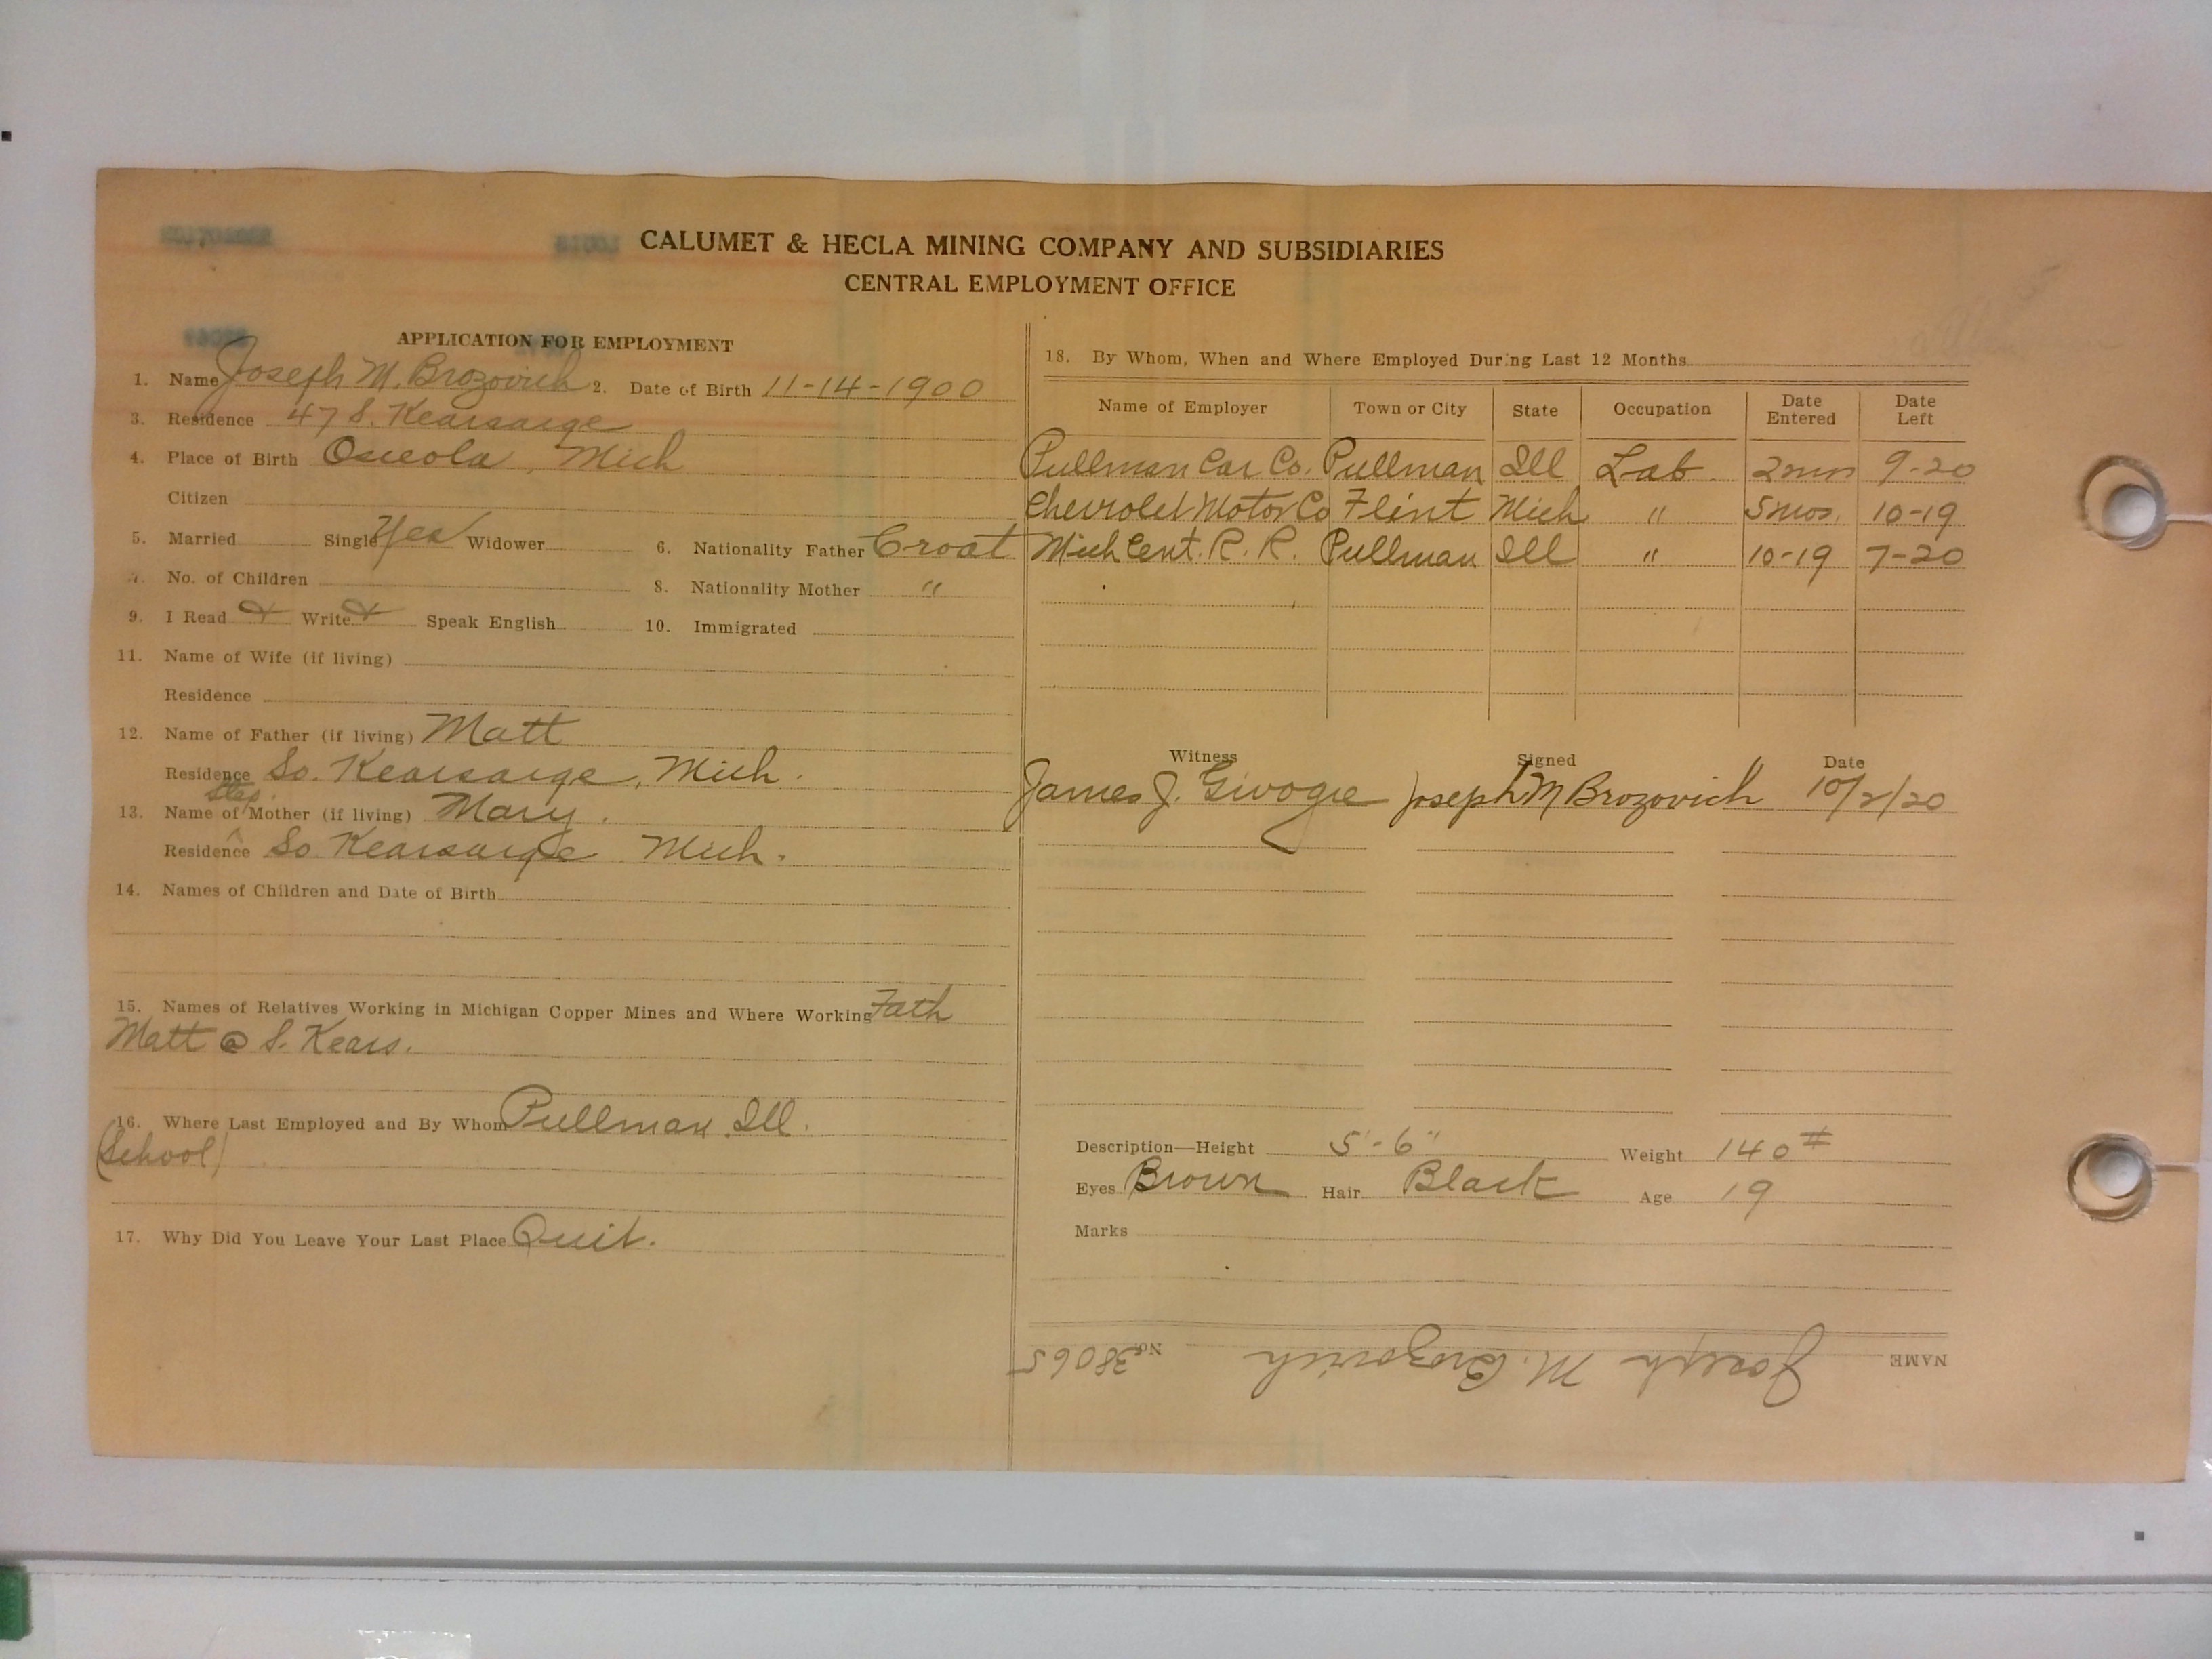 CALUMET & HECLA MINING COMPANY AND SUBSIDIARIES
CENTRAL EMPLOYMENT OFFICE
APPLICATION FOR EMPLOYMENT
1. Name Joseph M. Brozovich 2. Date of Birth 11-14-1900
3. Residence 47 S. Kearsarge
4. Place of Birth Osceola, Mich
Citizen
5. Married Single Yes Widower 6. Nationality Father Croat
7. No. of Children 8. Nationality Mother "
9. I Read & Write & Speak English 10. Immigrated
11. Name of Wife (if living)
Residence
12. Name of Father (if living) Matt
Residence So. Kearsarge, Mich.
13. Name of Step Mother (if living) Mary.
Residence So Kearsarge Mich.
14. Names of Children and Date of Birth
15. Names of Relatives Working in Michigan Copper Mines and Where Working Fath
Matt @ S. Kears.
16. Where Last Employed and By Whom Pullman Ill.
(School)
17. Why Did You Leave Your Last Place Quit.
18. By Whom, When and Where Employed During Last 12 Months
Name of Employer Town or City State Occupation Date Entered Date Left
Pullman Car Co. Pullman Ill Lab. 2mos 9-20
Chevrolet Motor Co Flint Mich " 5mos. 10-19
Mich Cent. R. R. Pullman Ill " 10-19 7-20
Witness Signed Date
James J. Joseph M Brozovich 10/2/20
Description—Height 5'-6" Weight 140#
Eyes Brown Hair Black Age 19
Marks
NAME Joseph M. Brozovich No. 38065